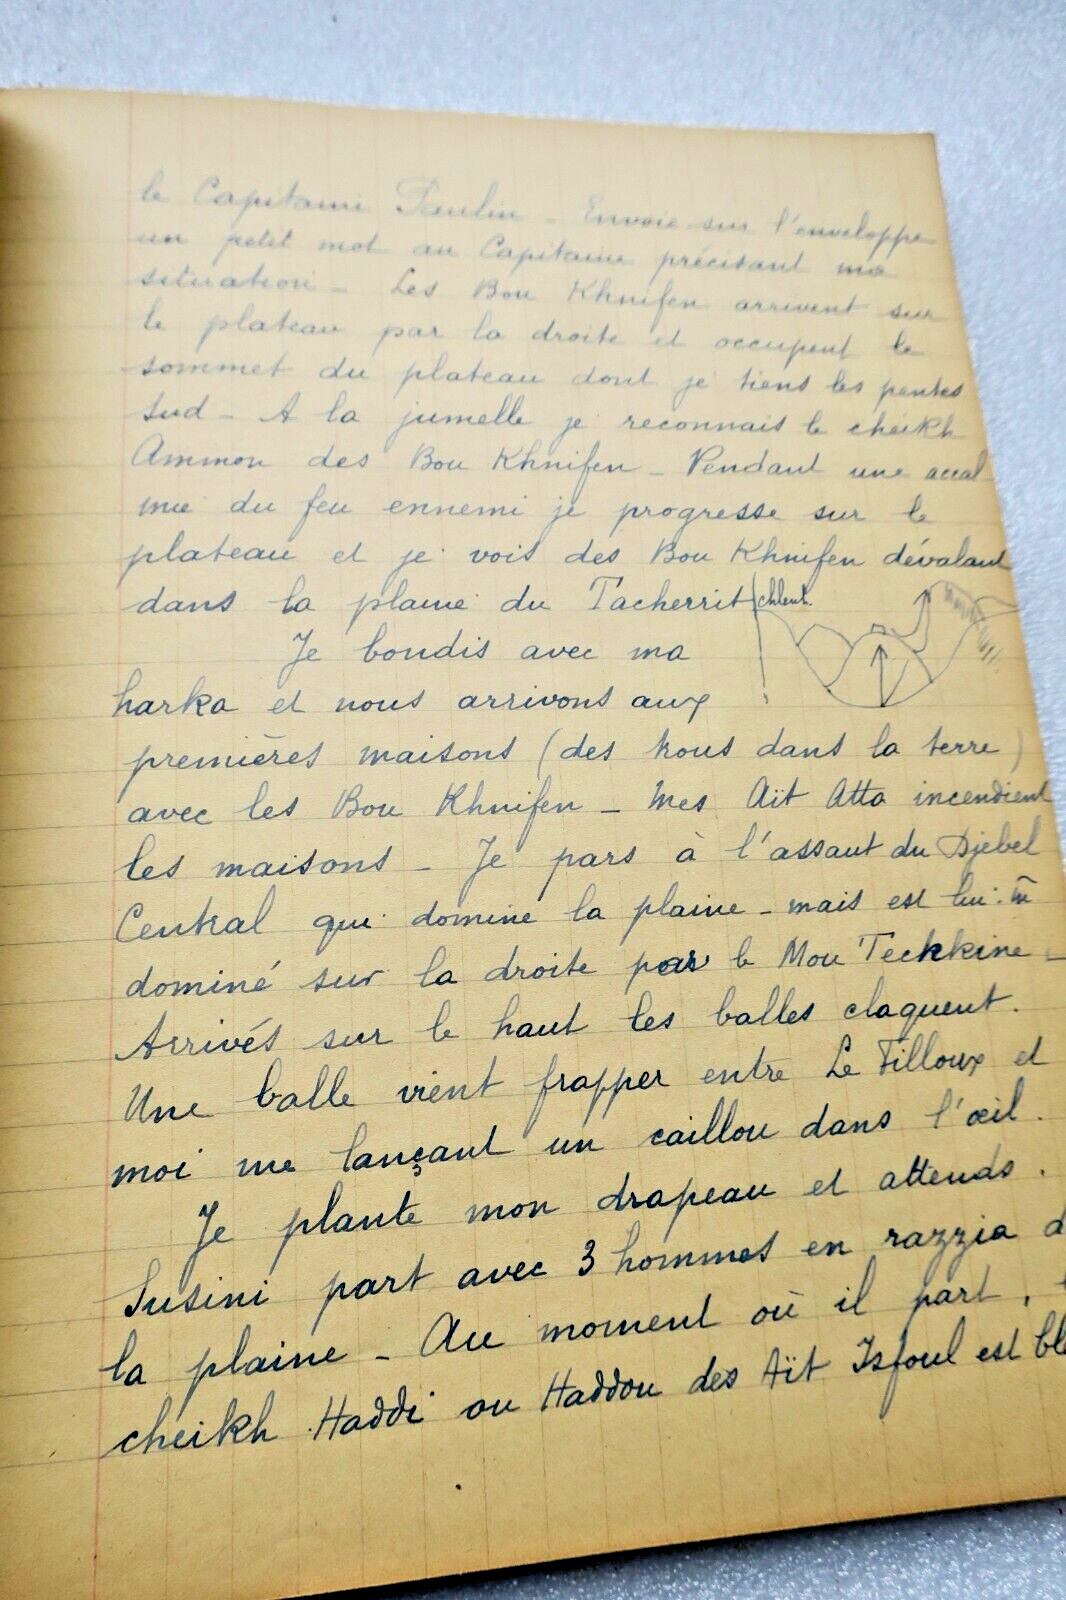 le Capitaine Paulin - Envoie sur l'enveloppe
un petit mot au Capitaine précisant ma
situation - Les Bou Khnifen arrivent sur
le plateau par la droite et occupent le
sommet du plateau dont je tiens les pentes
sud - A la jumelle je reconnais le cheikh
Ammon des Bou Khnifen - Pendant une accal
mie du feu ennemi je progresse sur le
plateau et je vois des Bou Khnifen dévalant
dans la plaine du Tacherrit
Je bondis avec ma
harka et nous arrivons aux
premières maisons (des trous dans la terre)
avec les Bou Khnifen - Mes Aït Atta incendient
les maisons - Je pars à l'assaut du Djebel
Central qui domine la plaine - mais est lui-m̄
dominé sur la droite par le Mou Teckkine -
Arrivés sur le haut les balles claquent.
Une balle vient frapper entre Le Filloux et
moi me lançant un caillou dans l'œil.
Je plante mon drapeau et attends.
Susini part avec 3 hommes en razzia d
la plaine - Au moment où il part,
cheikh Haddi ou Haddou des Aït Isfoul est ble